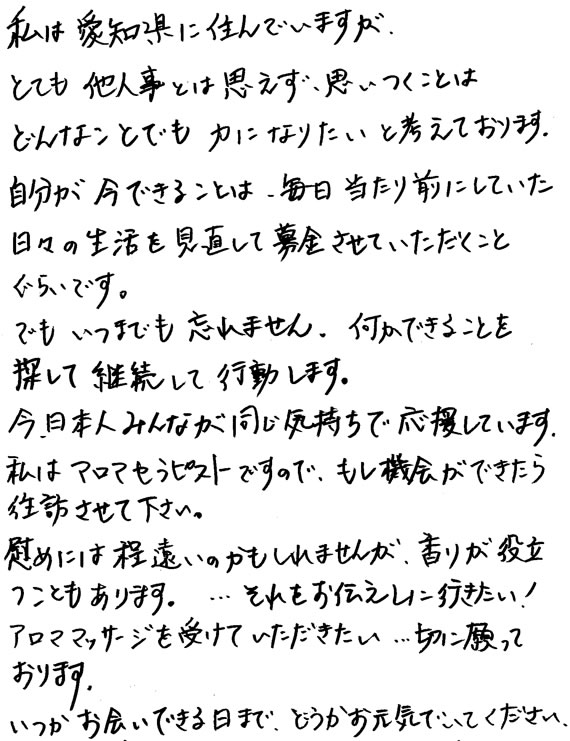 私は愛知県に住んでいますが、
とても他人事とは思えず、思いつくことは
どんなことでも力になりたいと考えております。
自分が今できることは、毎日当たり前にしていた
日々の生活を見直して募金させていただくこと
ぐらいです。
でもいつまでも忘れません。何かできることを
探して継続して行動します。
今、日本人みんなが同じ気持ちで応援しています。
私はアロマセラピストですので、もし機会ができたら
往訪させて下さい。
慰めには程遠いのかもしれませんが、香りが役立
つこともあります。…それをお伝えしに行きたい！
アロママッサージを受けていただきたい…切に願って
おります。
いつかお会いできる日まで、どうかお元気でいてください、